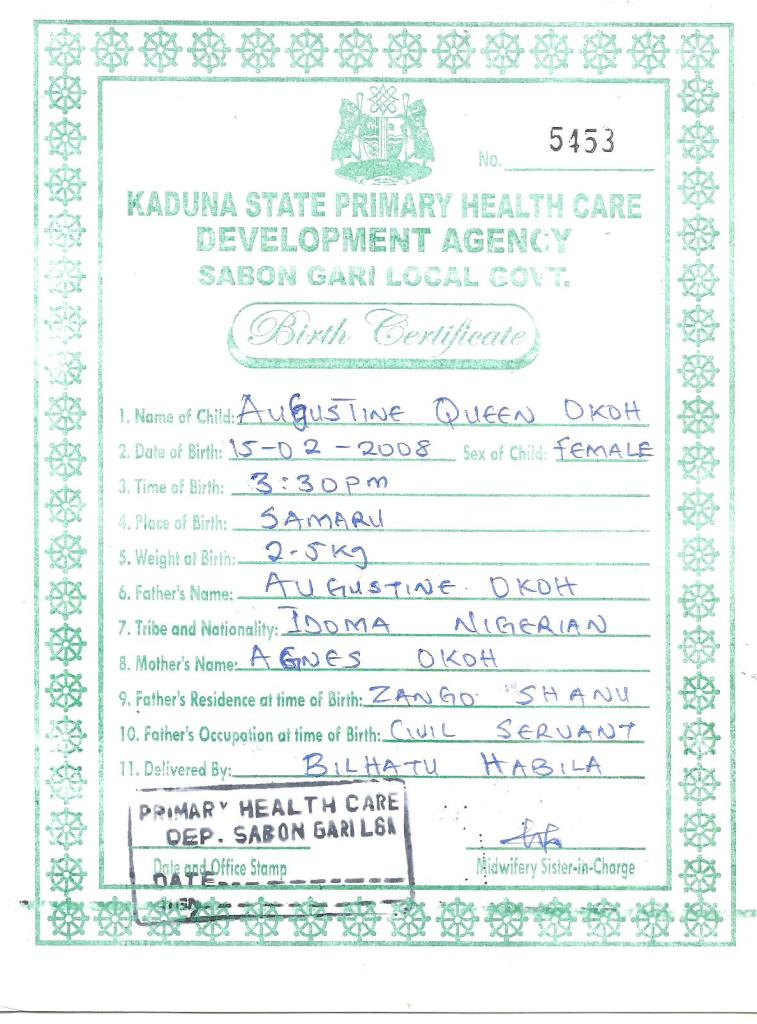 No. 5453
KADUNA STATE PRIMARY HEALTH CARE
DEVELOPMENT AGENCY
SABON GARI LOCAL GOVT.
Birth Certificate
1. Name of Child: AUGUSTINE QUEEN OKOH
2. Date of Birth: 15-02-2008 Sex of Child: FEMALE
3. Time of Birth: 3:30pm
4. Place of Birth: SAMARU
5. Weight at Birth: 2-5Kg
6. Father's Name: AUGUSTINE OKOH
7. Tribe and Nationality: IDOMA NIGERIAN
8. Mother's Name: AGNES OKOH
9. Father's Residence at time of Birth: ZANGO SHANU
10. Father's Occupation at time of Birth: CIVIL SERVANT
11. Delivered By: BILHATU HABILA
PRIMARY HEALTH CARE
DEP. SABON GARI LGA
Date and Office Stamp Midwifery Sister-in-Charge
DATE